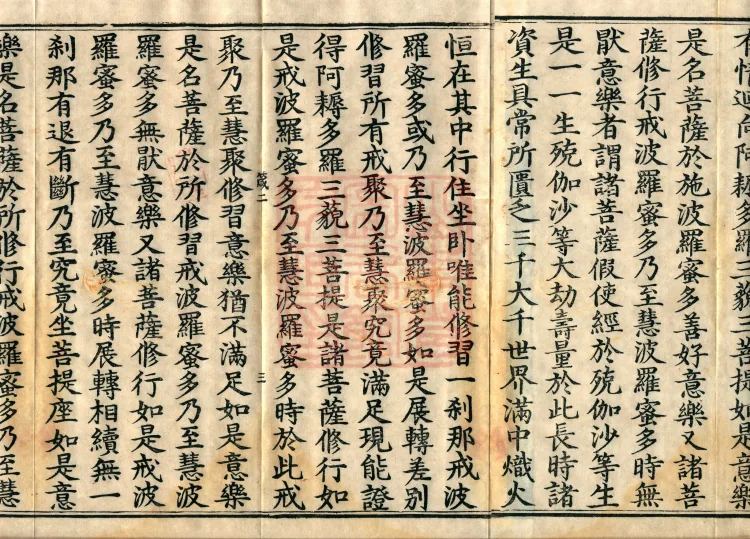 有情迴向阿耨多羅三藐三菩提如是意樂
是名菩薩於施波羅蜜多善好意樂又諸菩
薩修行戒波羅蜜多乃至慧波羅蜜多時無
猒意樂者謂諸菩薩假使經於殑伽沙等生
是一一生殑伽沙等大劫壽量於此長時諸
資生具常所匱乏三千大千世界滿中熾火
恒在其中行住坐卧唯能修習一剎那戒波
羅蜜多或乃至慧波羅蜜多如是展轉差別
修習所有戒聚乃至慧聚究竟滿足現能證
得阿耨多羅三藐三菩提是諸菩薩修行如
是戒波羅蜜多乃至慧波羅蜜多時於此戒
箴二 三
聚乃至慧聚修習意樂猶不滿足如是意樂
是名菩薩於所修習戒波羅蜜多乃至慧波
羅蜜多無猒意樂又諸菩薩修行如是戒波
羅蜜多乃至慧波羅蜜多時展轉相續無一
剎那有退有斷乃至究竟坐菩提座如是意
樂是名菩薩於所修行戒波羅蜜多乃至慧